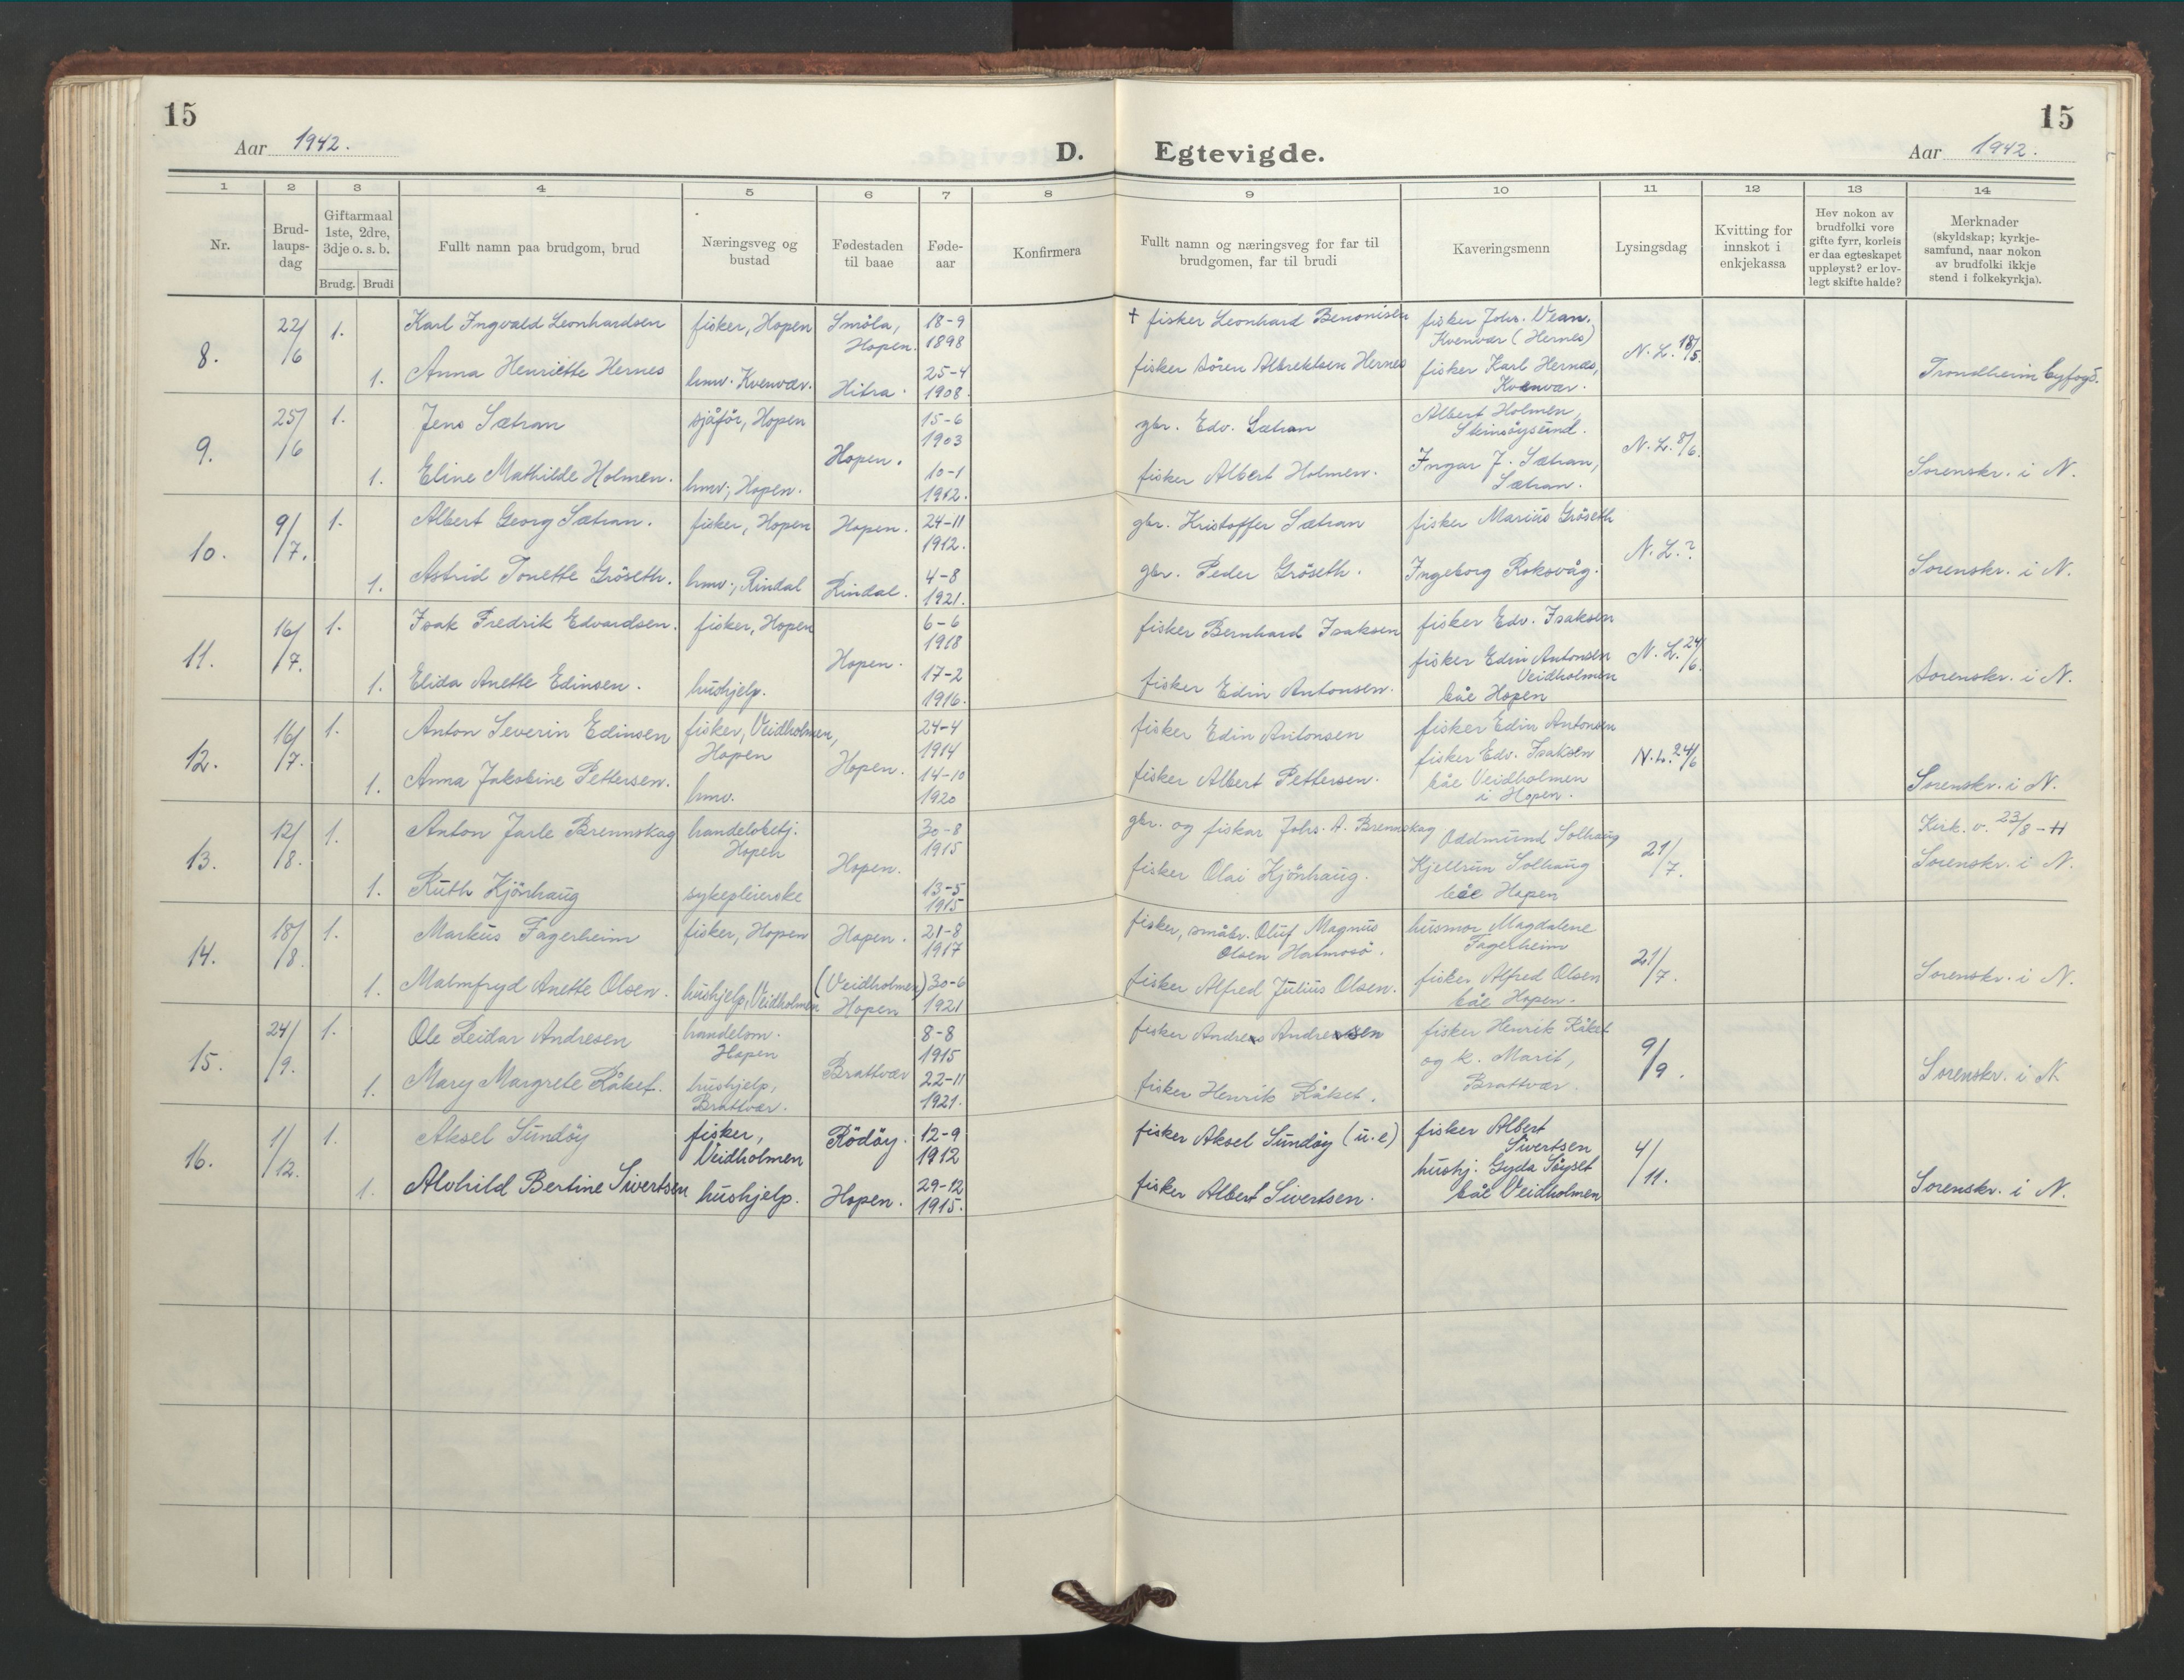 15
15
Aar 1942.
D. Egtevigde.
Aar 1942.
1 2 3 4 5 6 7 8 9 10 11 12 13 14
Nr.
Brud-
laups-
dag
Giftarmaal
1ste, 2dre,
3dje o. s. b.
Brudg. Brudi
Fullt namn paa brudgom, brud
Næringsveg og
bustad
Fødestaden
til baae
Føde-
aar
Konfirmera
Fullt namn og næringsveg for far til
brudgomen, far til brudi
Kaveringsmenn
Lysingsdag
Kvitting for
innskot i
enkjekassa
Hev nokon av
brudfolki vore
gifte fyrr, korleis
er daa egteskapet
uppløyst? er lov-
legt skifte halde?
Merknader
(skyldskap; kyrkje-
samfund, naar nokon
av brudfolki ikkje
stend i folkekyrkja).
8. 22/6 1. Karl Ingvald Leonhardsen fisker, Hopen Smöla, Hopen. 18-9 1898 † fisker Leonhard Benonisen fisker Johs. Vean. Kvenvær (Hernes) N. L. 18/5.
1. Anna Henriette Hernes hmv. Kvenvær. Hitra. 25-4 1908. fisker Sören Albrektsen Hernes fisker Karl Hernes, Kvenvær. Trondheim byfogd.
9. 25/6 1. Jens Sætran sjåför, Hopen Hopen. 15-6 1903 gbr. Edv. Sætran Albert Holmen, Steinsöysund. N. L. 8/6.
1. Eline Mathilde Holmen. hmv., Hopen. 10-1 1912. fisker Albert Holmen. Ingar J. Sætran, Sætran. Sorenskr. i N.
10. 9/7. 1. Albert Georg Sætran. fisker, Hopen Hopen. 24-11 1912. gbr. Kristoffer Sætran fisker Marius Gröseth N. L. ?
1. Astrid Tonette Gröseth. hmv., Rindal Rindal. 4-8 1921. gbr. Peder Gröseth. Ingeborg Roksvåg. Sorenskr. i N.
11. 16/7. 1. Isak Fredrik Edvardsen. fisker, Hopen Hopen. 6-6 1918 fisker Bernhard Isaksen fisker Edv. Isaksen N. L. 24/6.
1. Elida Anette Edinsen. hushjelp. 17-2 1916. fisker Edin Antonsen. fisker Edin Antonsen Veidholmen båe Hopen Sorenskr. i N.
12. 16/7. 1. Anton Severin Edinsen fisker, Veidholmen, Hopen Hopen. 24-4 1914 fisker Edin Antonsen fisker Edin Antonsen N. L. 24/6
1. Anna Jakobine Pettersen. hmv. 14-10 1920 fisker Albert Pettersen. fisker Edv. Isaksen båe Veidholmen i Hopen. Sorenskr. i N.
13. 12/8. 1. Anton Jarle Brennskag handelsbetj. Hopen Hopen. 30-8 1915 gbr. og fiskar Johs. A. Brennskag Oddmund Solhaug 21/7. Kirk. v. 23/8 -
1. Ruth Kjönhaug sykepleierske 13-5 1915 fisker Olai Kjönhaug. Kjellrun Solhaug båe Hopen Sorenskr. i N.
14. 18/8. 1. Markus Fagerheim fisker, Hopen Hopen. 21-8 1917 fisker, småbr. Oluf Magnus Olsen husmor Magdalene Fagerheim 21/7.
1. Malmfryd Anette Olsen. hushjelp, Veidholmen (Veidholmen) Hopen 30-6 1921 fisker Alfred Julius Olsen. fisker Alfred Olsen båe Hopen. Sorenskr. i N.
15. 24/9. 1. Ole Reidar Andresen handelsm. Hopen Brattvær 8-8 1915 fisker Andreas Andresen fisker Henrik Råket og k. Marit, Brattvær. 9/9.
1. Mary Margrete Råket. hushjelp, Brattvær. 22-11 1921. fisker Henrik Råket. Sorenskr. i N
16. 1/12. 1. Aksel Sundöy fisker, Veidholmen Rödöy. 12-9 1912 fisker Aksel Sundöy (u.e) fisker Albert Sivertsen 4/11.
1. Alvhild Bertine Sivertsen hushjelp. Hopen. 29-12 1915. fisker Albert Sivertsen. hushj. Gyda Söyset båe Veidholmen Sorenskr. i N.